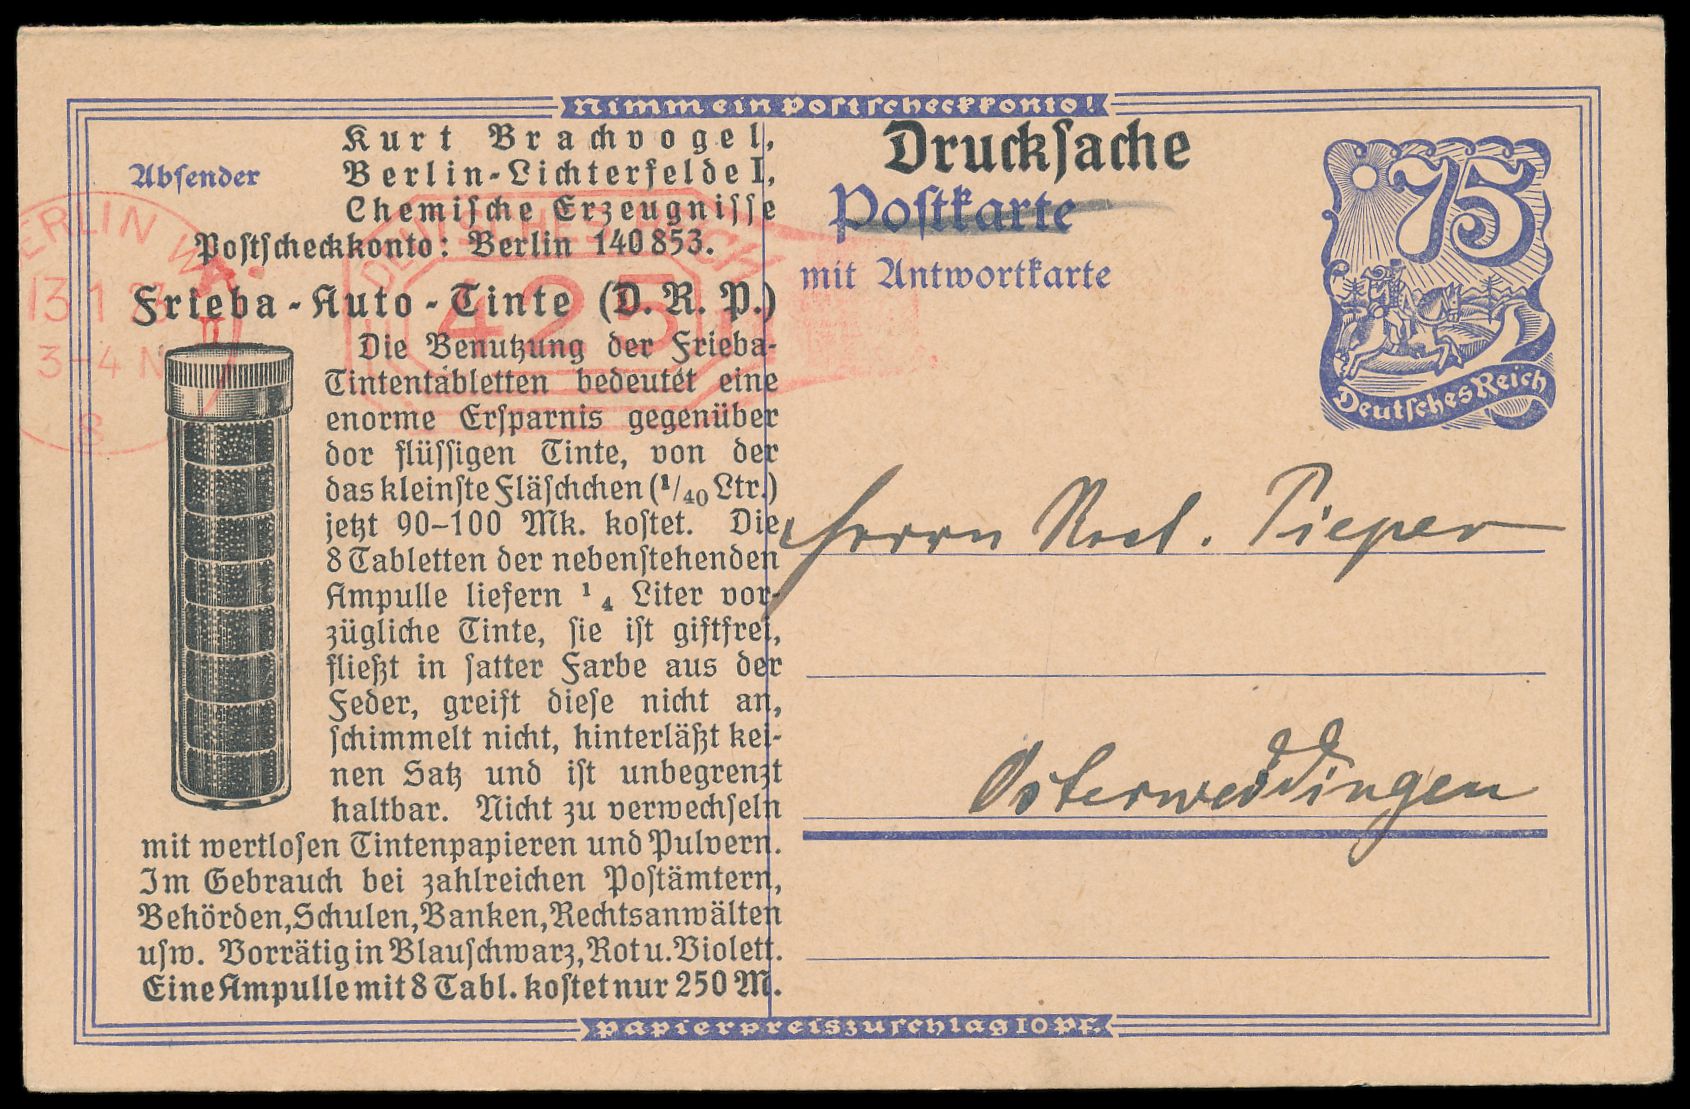 Nimm ein Postscheckkonto!
Kurt Brachvogel,
Absender
Berlin-Lichterfelde I,
Chemische Erzeugnisse
Postscheckkonto: Berlin 140853.
Frieba-Auto-Tinte (D. R. P.)
Die Benutzung der Frieba-
Tintentabletten bedeutet eine
enorme Ersparnis gegenüber
dor flüssigen Tinte, von der
das kleinste Fläschchen (1/40 Ltr.)
jetzt 90-100 Mk. kostet. Die
8 Tabletten der nebenstehenden
Ampulle liefern 1 4 Liter vor-
zügliche Tinte, sie ist giftfrei,
fließt in satter Farbe aus der
Feder, greift diese nicht an,
schimmelt nicht, hinterläßt kei-
nen Satz und ist unbegrenzt
haltbar. Nicht zu verwechseln
mit wertlosen Tintenpapieren und Pulvern.
Im Gebrauch bei zahlreichen Postämtern,
Behörden, Schulen, Banken, Rechtsanwälten
usw. Vorrätig in Blauschwarz, Rot u. Violett.
Eine Ampulle mit 8 Tabl. kostet nur 250 M.
BERLIN W
13 1 23
3-4 N
8
DEUTSCHES REICH
425
Drucksache
Postkarte
mit Antwortkarte
75
Deutsches Reich
Herrn Pieper
Osterweddingen
Papierpreiszuschlag 10 Pf.